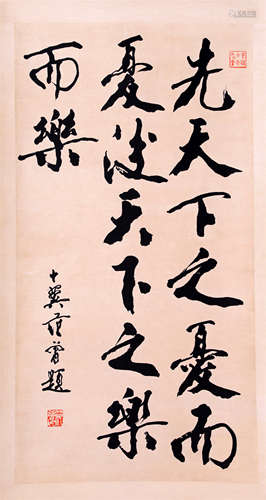 先天下之憂而
憂後天下之樂
而樂
十翼范曾題